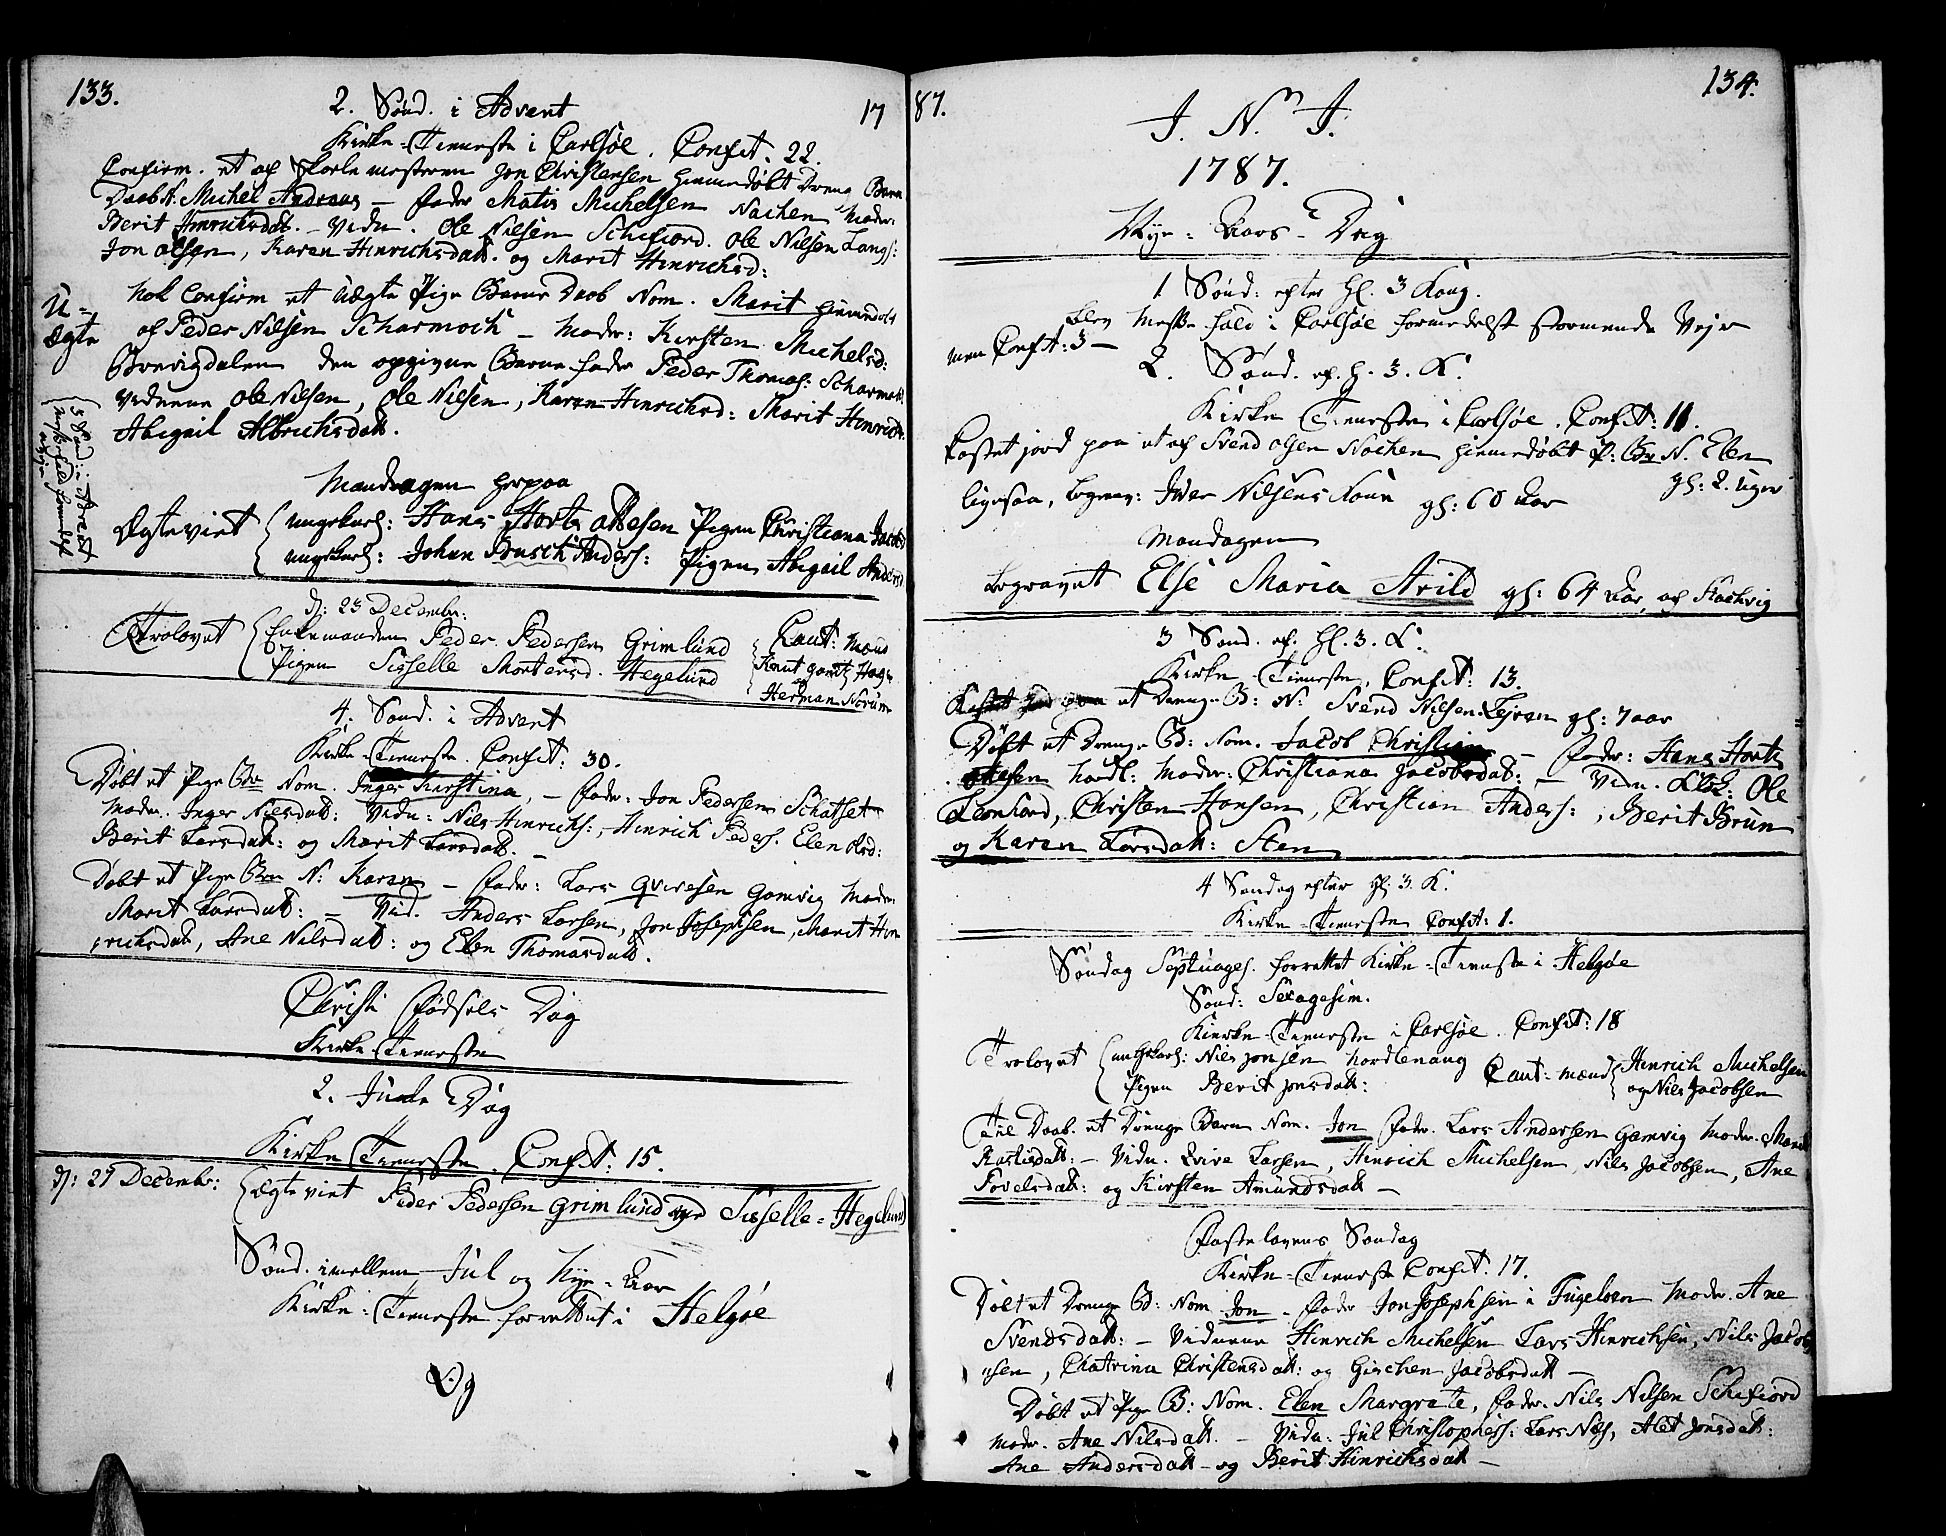 133.
17
2. Sønd. i Advent
Kirke-Tieneste i Carlsøe. Confit. 22.
Confirm. et af Skolemesteren Jon Christensen hiemedøbt Drenge Barn
Daab N. Michel Andreas – Fader Matis Michelsen Nachen Moder
Berit Hinrichsdatt. – Vidn. Ole Nilsen Schifiord. Ole Nilsen Langs:
Jon Olsen, Karen Hinrichsdatt. og Marit Hinrichsd:
U-
Ægte
Nok Confirm et Uægte Pige Barns Daab Nom. Marit hiemedøbt
af Peder Nilsen Scharmoch – Moder: Kirsten Michelsd:
Brevigdalen den opgivne Barnefader Peder Thomas: Scharmoch.
Vidnerne Ole Nilsen, Ole Nilsen, Karen Hinrichsd: Marit Hinrichs.
Abigail Albrichsdatt.
3 Sønd: i Advent
Messefald formedelst
Vejer
Mandagen herpaa
Ægteviet
ungekarl: Hans Hortz Ottesen Pigen Christiana Jacobsd
ungekarl: Johan Busch Anders: Pigen Abigail Andersd
D: 23 Decembr:
Trolovet
Enkemanden Peder Pedersen Grimlund
Pigen Sisselle Mortensd. Hegelund
Caut: Mænd
Knut
Herman Norum
4. Sønd. i Advent
Kirke-Tieneste. Confit: 30.
Døbt et Pige Bn Nom. Inger Kirstina, – Fader: Jon Pedersen Schatset
Moder. Inger Nielsdatt: Vidn: Nils Hinrichs:, Hinrich Peders. Elen Olsd:
Berit Larsdatt: og Marit Larsdatt. –
Døbt et Pige Bn N: Karen – Fader: Lars Qvivesen Gamvig Moder
Marit Larsdatt: – Vid. Anders Larsen, Jon Josephsen, Marit Hin
richsdatt, Ane Nilsdatt: og Elen Thomasdatt.
Christi Fødsels Dag
Kirke-Tieneste
2. Jule Dag
Kirke Tieneste. Confit: 15.
D: 27 Decembr:
Ægteviet Peder Pedersen Grimlund og Sisselle Hegelund
Sønd. imellem Jul og Nye-Aar
Kirke-Tieneste forrettet i Helgøe
Og
87.
134.
J. N. J.
1787.
Nye-Aars-Dag
1 Sønd: efter Hl. 3 Kong.
blev Messefald i Carlsøe formedelst stormende Vejr
men Confit: 3 –
2. Sønd. ef. H. 3. K.
Kirke Tieneste i Carlsøe. Confit: 11.
Kastet jord paa et af Svend Olsen Nachen hiemedøbt P: Bn N. Elen
gl: 2. uger
ligesaa, begrav: Iver Nilsens Kone gl: 60 Aar
Mandagen
begravet Else Maria Arild gl: 64 Aar, af
3 Sønd. ef. Hl. 3. K:
Kirke-Tieneste, Confit: 13.
Kastet Jord paa et Drenge B: N: Svend Nilsen gl: 7 aar
Døbt et Drenge B: Nom. Jacob Christian – Fader: Hans Hortz
Ottesen Nordl: Moder: Christiana Jacobsdatt: – Vidn. Klok: Ole
Leonhard, Christen Hansen, Christian Anders:, Berit Brun
og Karen Larsdatt: Sten
4 Søndag efter Hl. 3. K.
Kirke-Tieneste Confit: 1.
Søndag Septuages. forrettet Kirke-Tieneste i Helgøe
Sønd: Sexagesim.
Kierke-Tieneste i Carlsøe. Confit: 18
Trolovet
ungekarl: Nils Jonsen Nordlenang
Pigen Berit Jonsdatt:
Caut: mænd Hinrich Michelsen
og Nils Jacobsen
Til Daab. et Drenge Barn Nom. Jon Fader. Lars Andersen Gamvig Moder. Maret
– Vidn. Qvive Larsen, Hinrich Michelsen, Nils Jacobsen, Ane
Povelsdatt: og Kirsten Amundsdatt –
Fastelavens Søndag
Kirke-Tieneste Confit. 17.
Døbt et Drenge B: Nom. Jon – Fader Jon Josephsen i Fugeløen Moder. Ane
Svendsdatt: – Vidnerne Hinrich Michelsen Lars Hinrichsen, Nils Jacob
sen, Chatrina Christensdatt: og Gjerchen Jacobsdatt –
Døbt et Pige B: Nom. Elen Margrete, Fader. Nils Nilsen Schifiord
Moder. Ane Nilsdatt. – Vidn. Jül Christophers: Lars Nils, Alet Jonsdatt:
Ane Andersdatt – og Berit Hinrichsdatt –